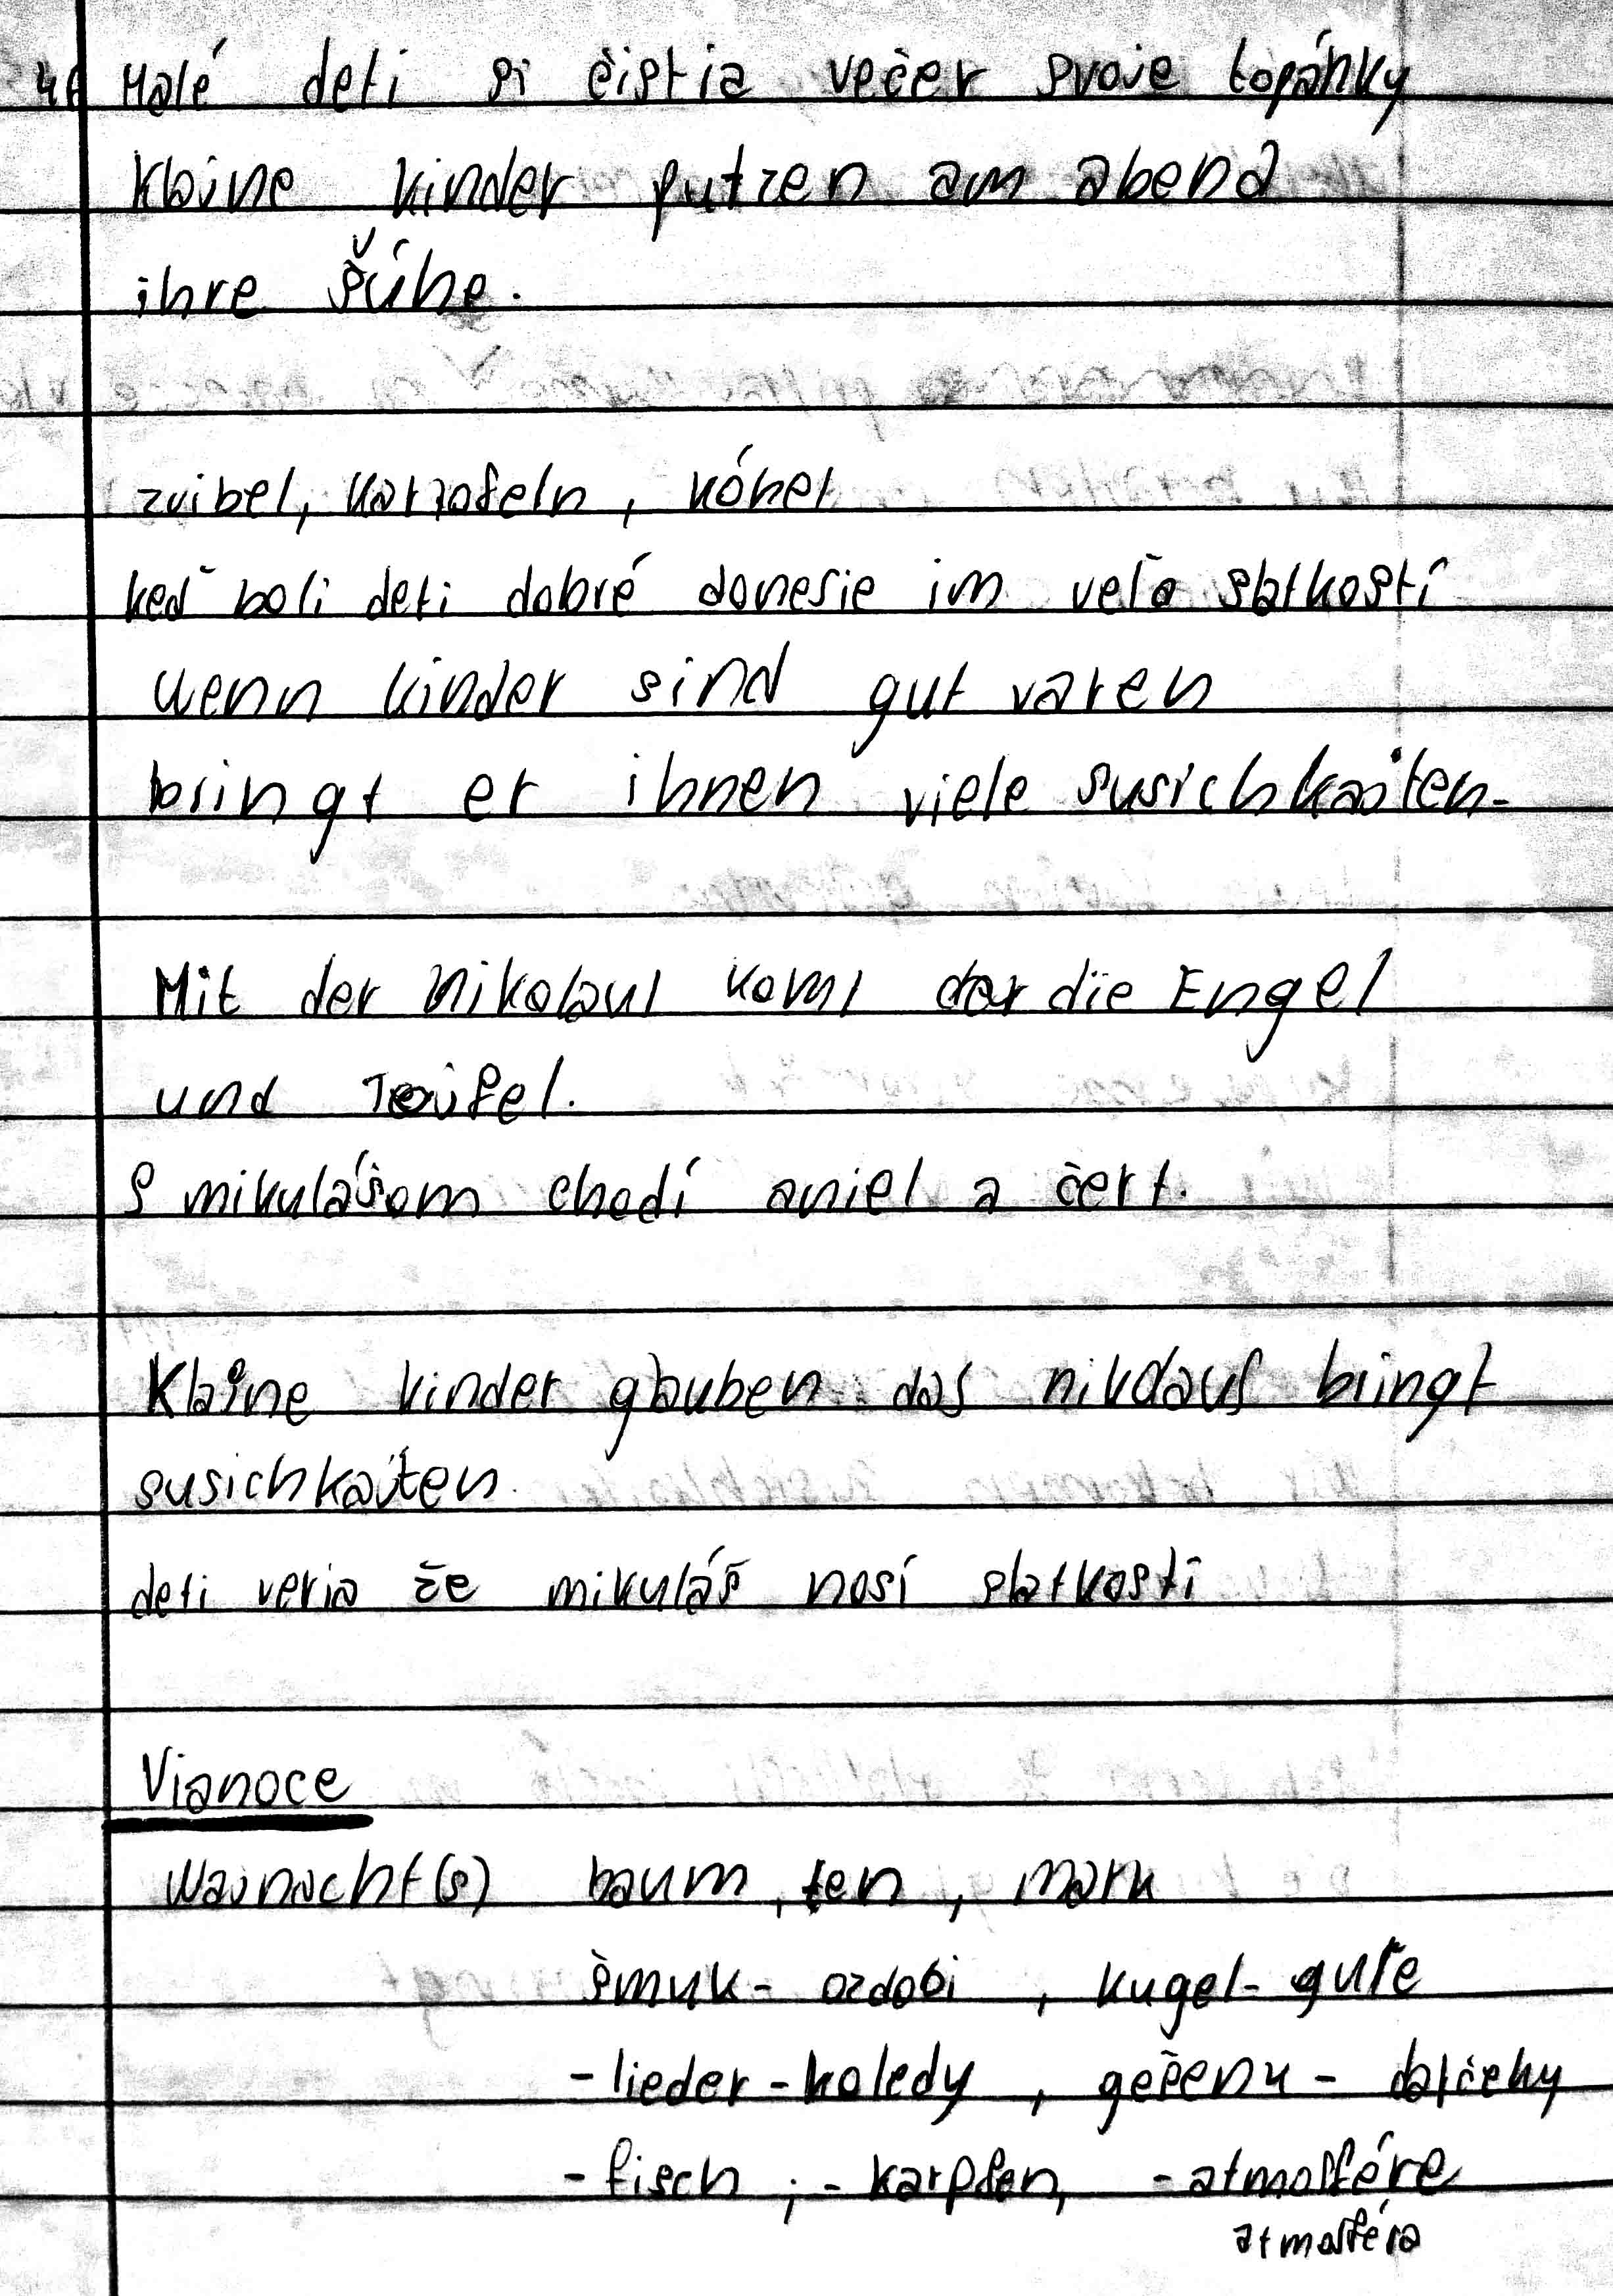 Malé deti si čistia večer svoje topánky
Klajne kinder putzen am abend
ihre šúhe.
zvibel, karzofeln, kóhel
keď boli deti dobré donesie im veľa slatkostí
wenn kinder sind gut varen
bringt er ihnen viele susichkajten.
Mit der nikolaus komt der die Engel
und Toifel.
S mikulášom chodí aniel a čert.
Klajne kinder glauben das nikolaus bringt
susichkajten.
deti veria že mikuláš nosí slatkosti
Vianoce
Wajnacht(s) baum, ten, mark
šmuk - ozdobi, kugel - guľe
- lieder - koledy, gešenk - darčeky
- fisch ; - karpfen, - atmosfére
atmosféra